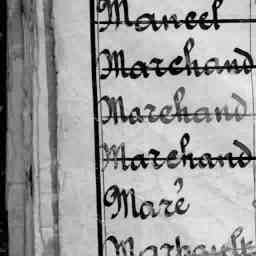 Mancel
Marchand
Marchand
Marchand
Maré